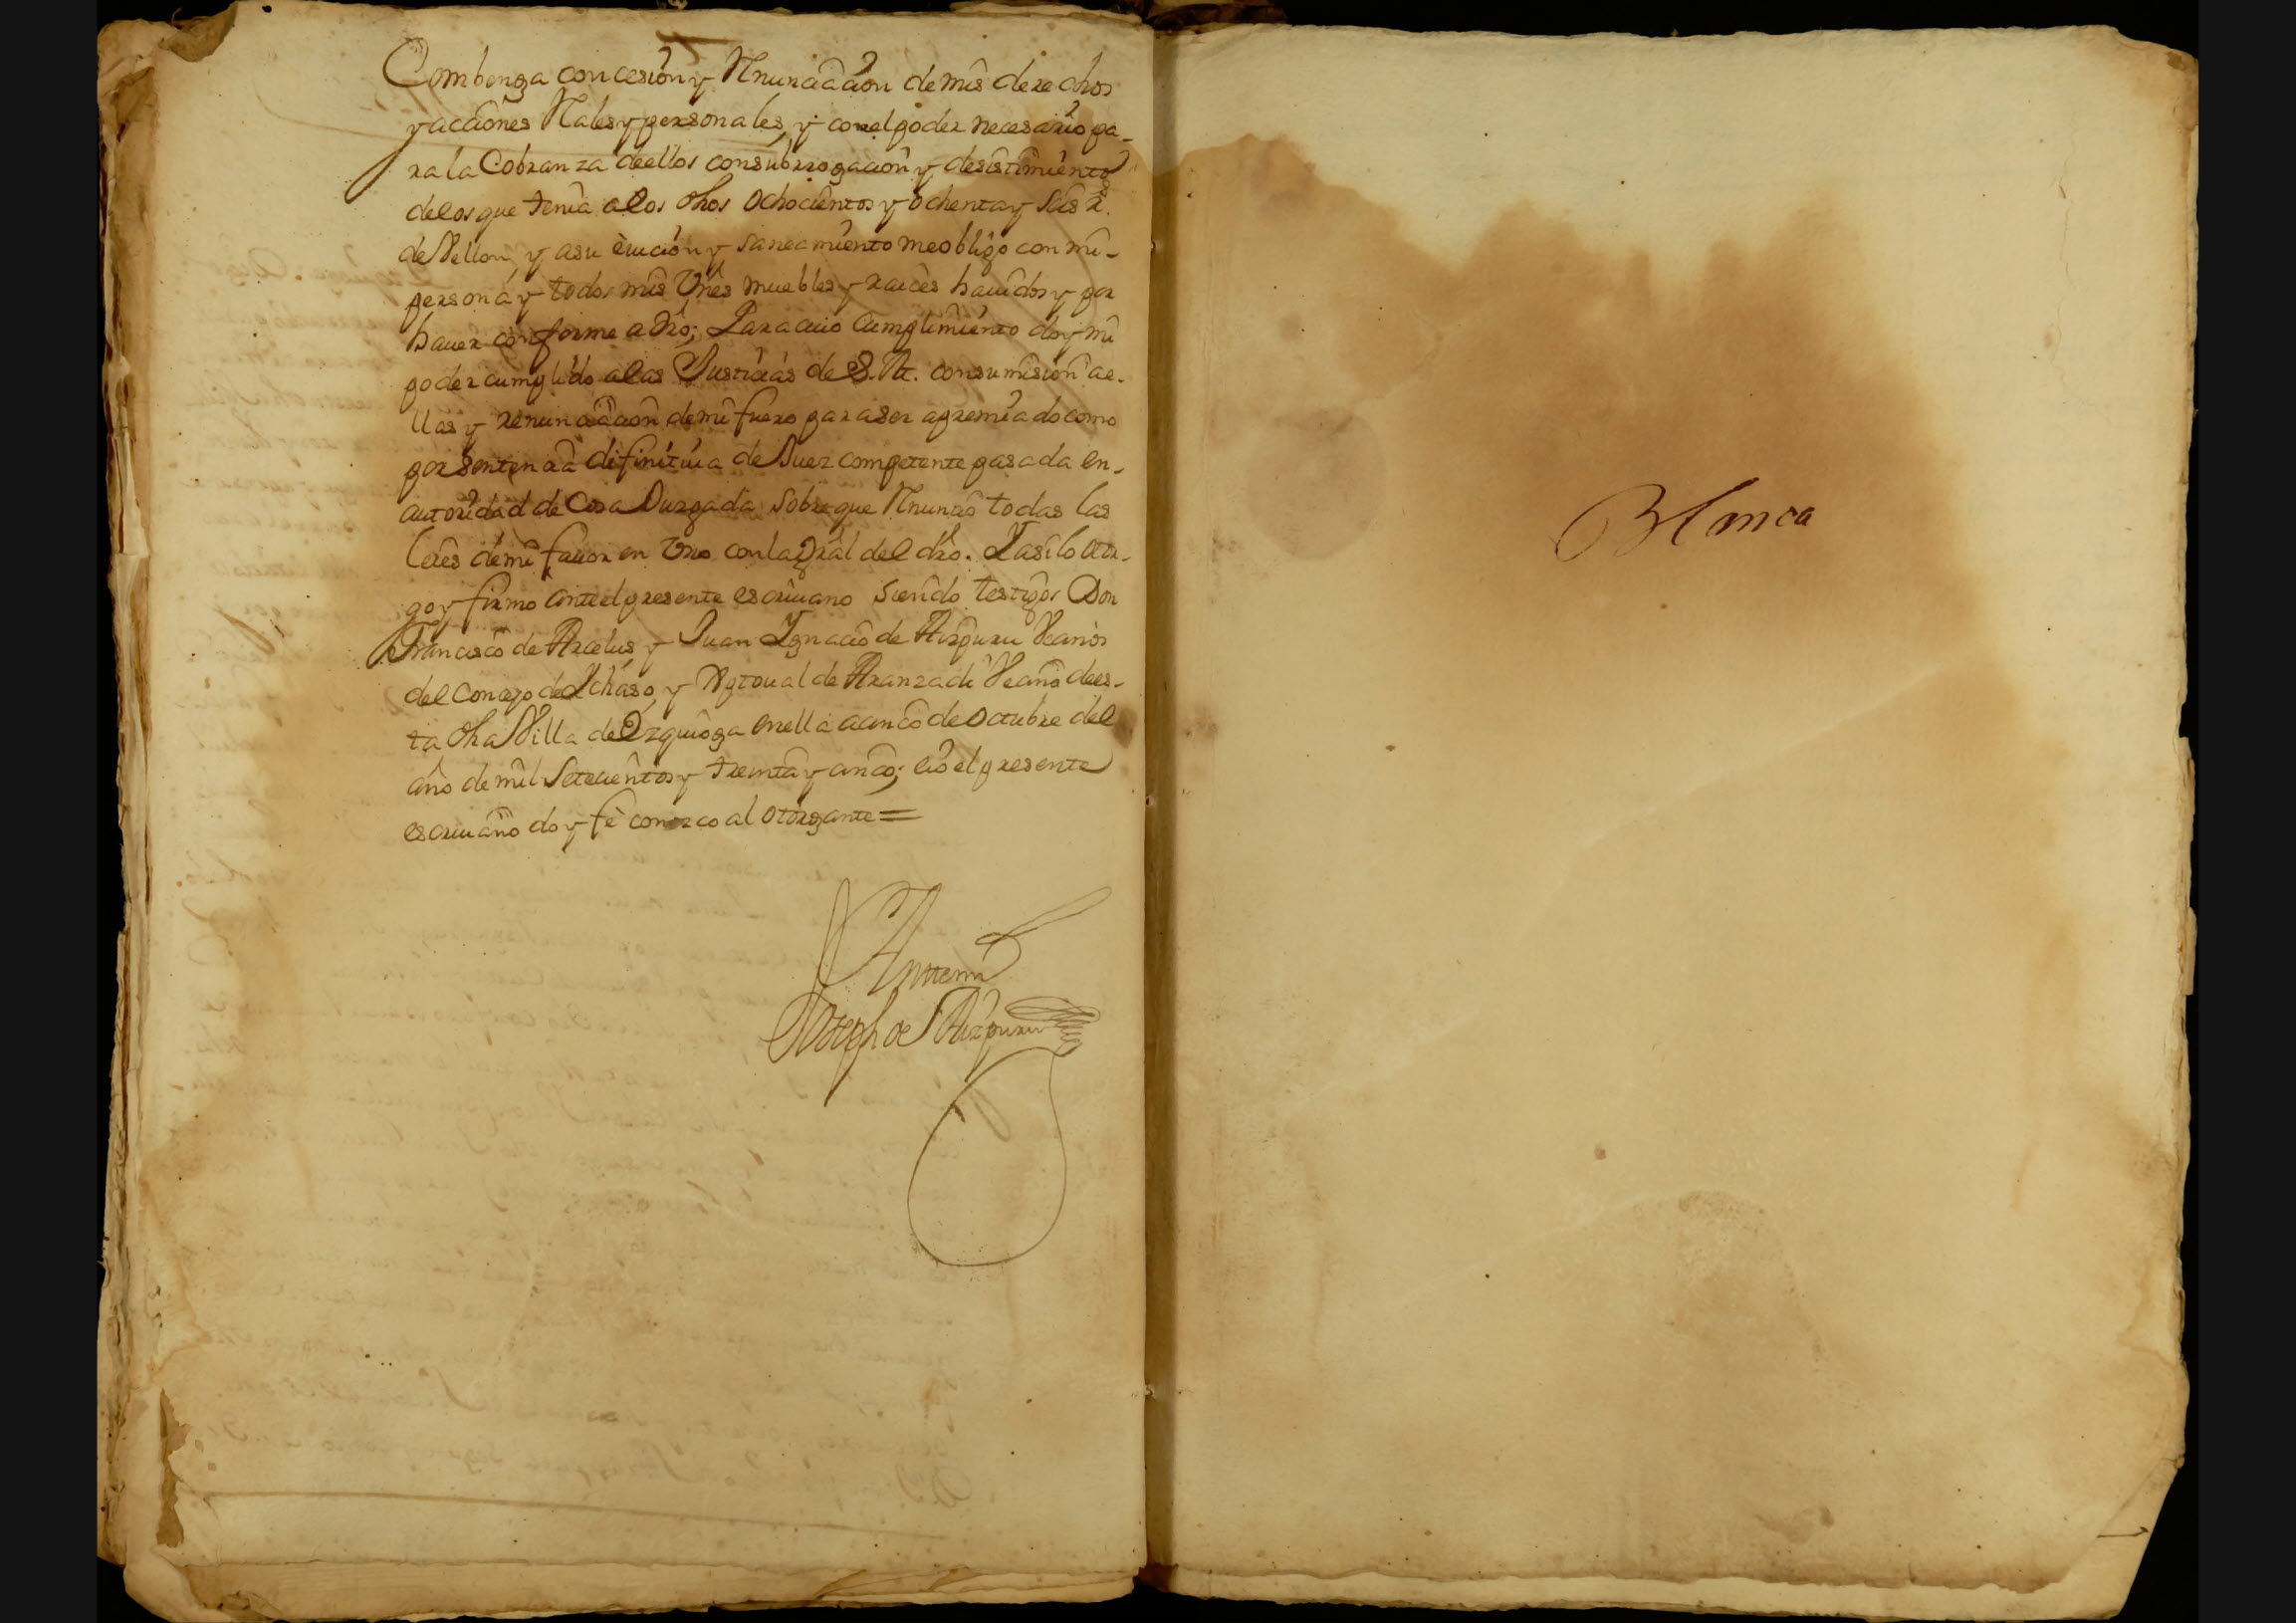 Combenga con cesion y Rnunciacion de mis derechos
y acciones Rales y personales, y con el poder necesario pa-
ra la Cobranza de ellos con subrrogacion y desistimiento
de los que tenia a los dhos ochocientos y ochenta y seis Rs.
de Vellon, y a su evicion y saneamiento me obligo con mi-
persona y todos mis Vnes muebles y raices hauidos y por
hauer conforme a dro; Para cuio Cumplimiento doy mi
poder cumplido a las Justicias de S. M. con sumision a e-
llas y renunciacion de mi fuero para ser apremiado como
por sentencia difinitiua de Juez competente pasada en-
autoridad de Cosa Juzgada sobre que Rnuncio todas las
leies de mi fauor en Vno con la Gral del dro. Y asi lo otor-
go y firmo ante el presente escriuano siendo testigos Don
Francisco de Arcelus, y Juan Ygnacio de Aizpuru Vecinos
del Concejo de Ichaso, y Xptoual de Aranzadi Vecino de es-
ta dha Villa de Ezquioga en ella a cinco de Octubre del
año de mil Setecientos y treinta y cinco; e io el presente
escriuano doy fe conozco al otorgante =
Antemi
Joseph de Aizpuru
Blanca